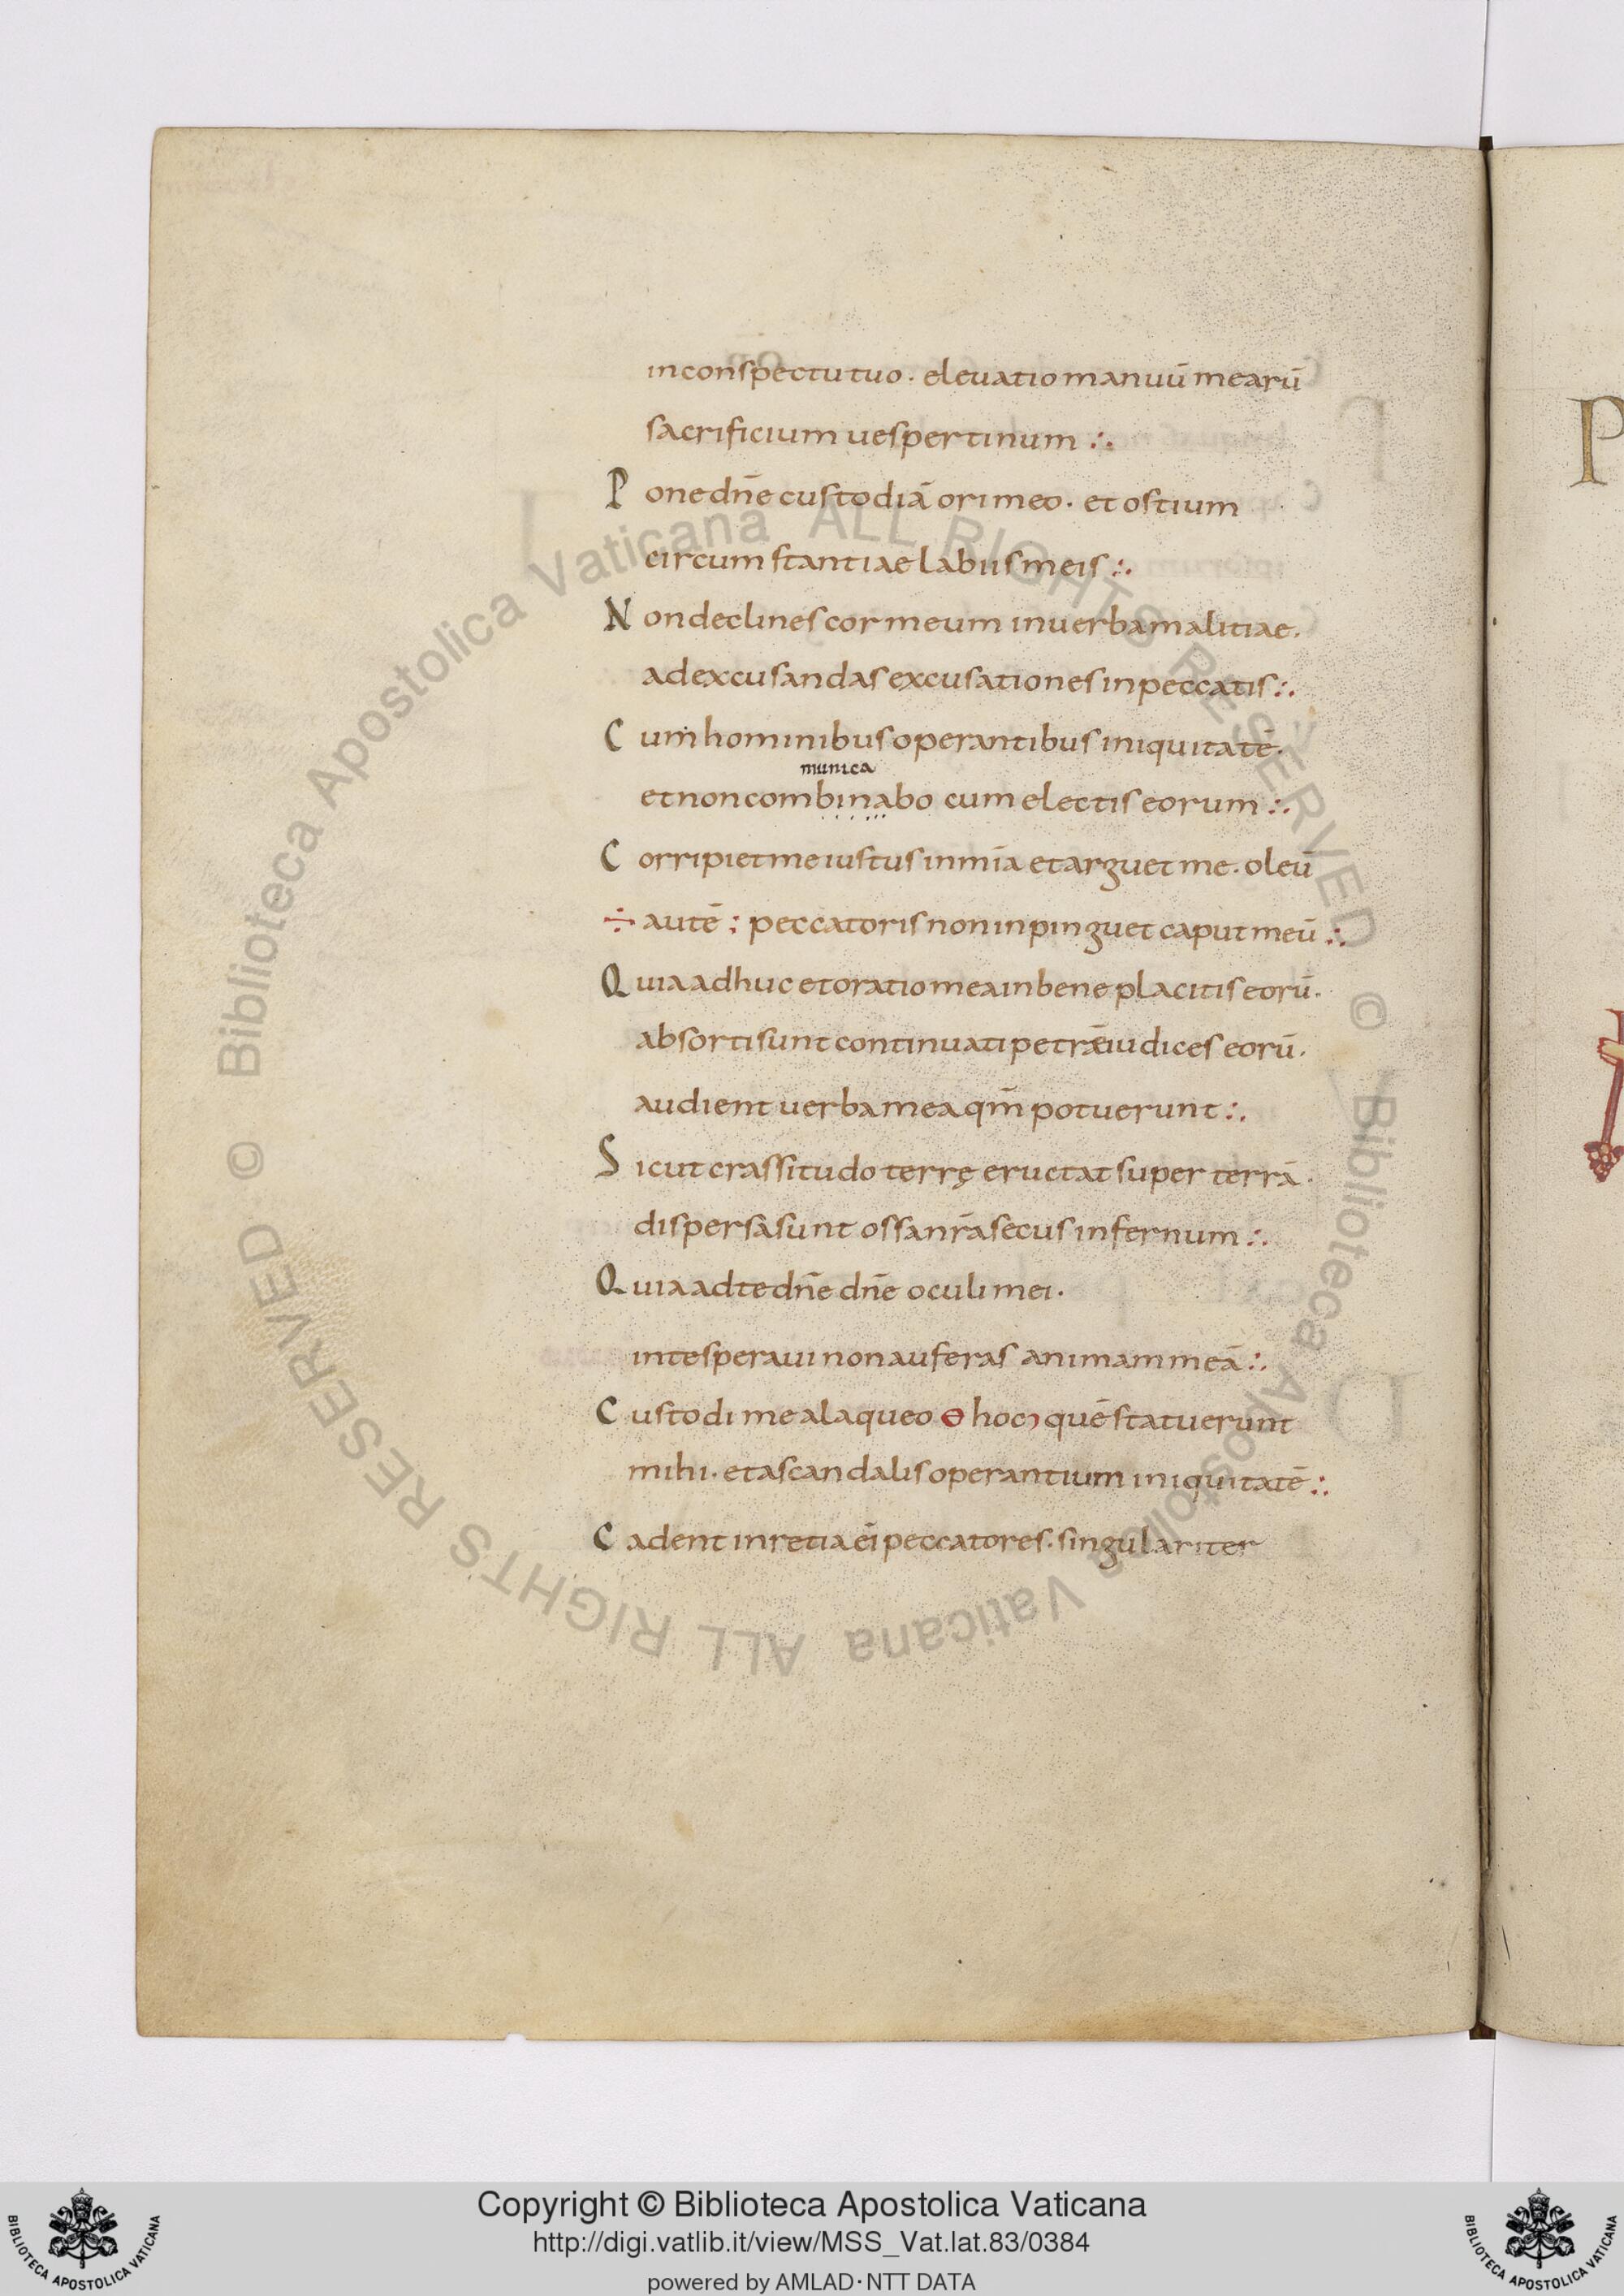 in conspectu tuo · eleuatio manuū mearū
sacrificium uespertinum :·
P one dn̄e custodiā ori meo · et ostium
circumstantiae labiis meis :·
N on declines cor meum in uerba malitiae ·
ad excusandas excusationes in peccatis :·
C um hominibus operantibus iniquitatē ·
munica
et non combinabo cum electis eorum :·
C orripiet me iustus in mīa et arguet me · oleū
÷ autē : peccatoris non inpinguet caput meū :·
Q uia adhuc et oratio mea in beneplacitis eorū ·
absorti sunt continuati petræ iudices eorū ·
audient uerba mea qm̄ potuerunt :·
S icut crassitudo terrę eructat super terrā ·
dispersa sunt ossa nr̄a secus infernum :·
Q uia ad te dn̄e dn̄e oculi mei ·
in te speraui non auferas animam meā :·
C ustodi me a laqueo ɵ hoc › quē statuerunt
mihi · et a scandalis operantium iniquitatē :·
C adent in retia ei peccatores · singulariter
P
© Biblioteca Apostolica Vaticana ALL RIGHTS RESERVED © Biblioteca Apostolica Vaticana ALL RIGHTS RESERVED
Copyright © Biblioteca Apostolica Vaticana
http://digi.vatlib.it/view/MSS_Vat.lat.83/0384
powered by AMLAD·NTT DATA
BIBLIOTECA APOSTOLICA VATICANA
BIBLIOTECA APOSTOLICA VATICANA